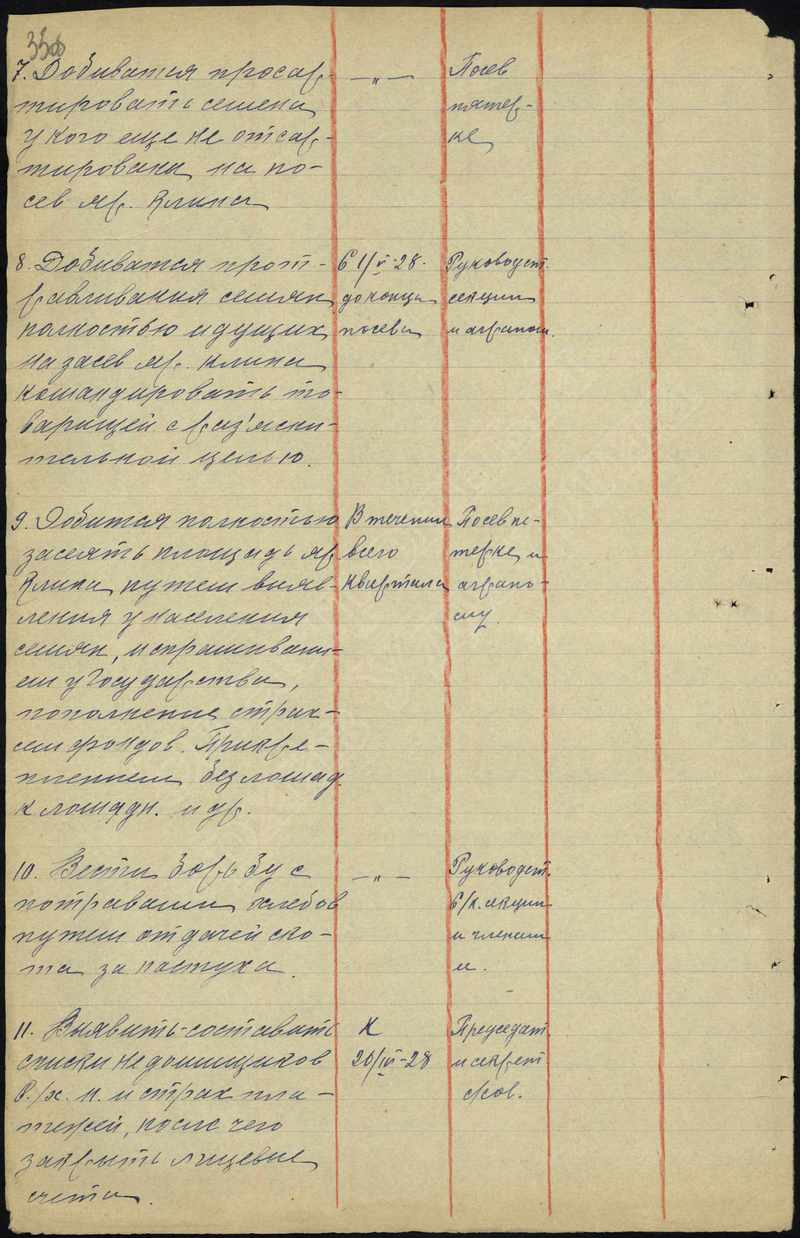 7. Добиватся просор-
тировать семена
у кого еще не отсор-
тирована на по-
сев яр. Клина
—„—
Посев
пятер-
ке
8. Добиватся прот-
равливания семян
полностью идущих
на засев яр. клина
командировать то-
варищей с раз'ясни-
тельной целью.
С 1/IV-28.
до конца
посева
Руководст.
секции
и агроном.
9. Добится полностью
засеять площадь яр
Клина путем выяв-
ления у населения
семян, испрашивани-
ем у Государства,
пополнение страх-
сем фондов. Прикре-
плением безлошад.
к лошадн. и др.
В течении
всего
квартала
Посев пе-
терке и
агроно-
му.
10. Вести борьбу с
потравами хлебов
путем отдачей ско-
та за пастуха.
—„—
Руководст.
С/х. секции
и членам
и.
11. Выявить-составить
списки недоимщиков
С./х. н. и страх пла-
тежей, после чего
закрыть лицевые
счета.
К
20/IV-28
Председат.
и секрет